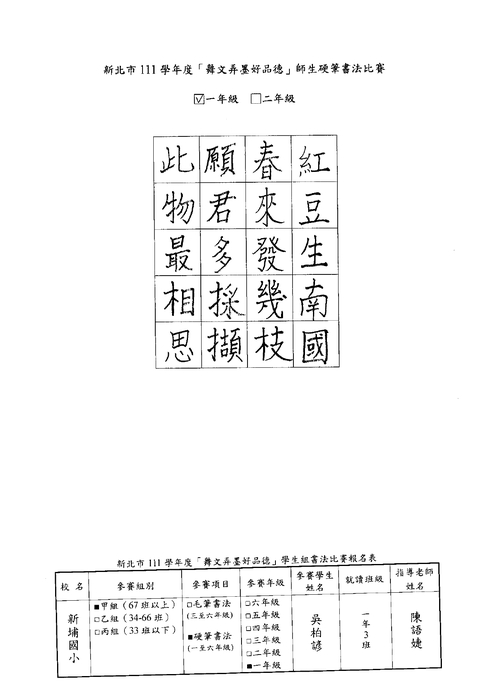 新北市 111 學年度「舞文弄墨好品德」師生硬筆書法比賽
☑一年級 □二年級
紅豆生南國
春來發幾枝
願君多採擷
此物最相思
新北市 111 學年度「舞文弄墨好品德」學生組書法比賽報名表
校名
參賽組別
參賽項目
參賽年級
參賽學生
姓名
就讀班級
指導老師
姓名
新埔國小
■甲組（67 班以上）
□乙組（34-66 班）
□丙組（33 班以下）
□毛筆書法
（三至六年級）
■硬筆書法
（一至六年級）
□六年級
□五年級
□四年級
□三年級
□二年級
■一年級
吳柏諺
一年3班
陳語婕